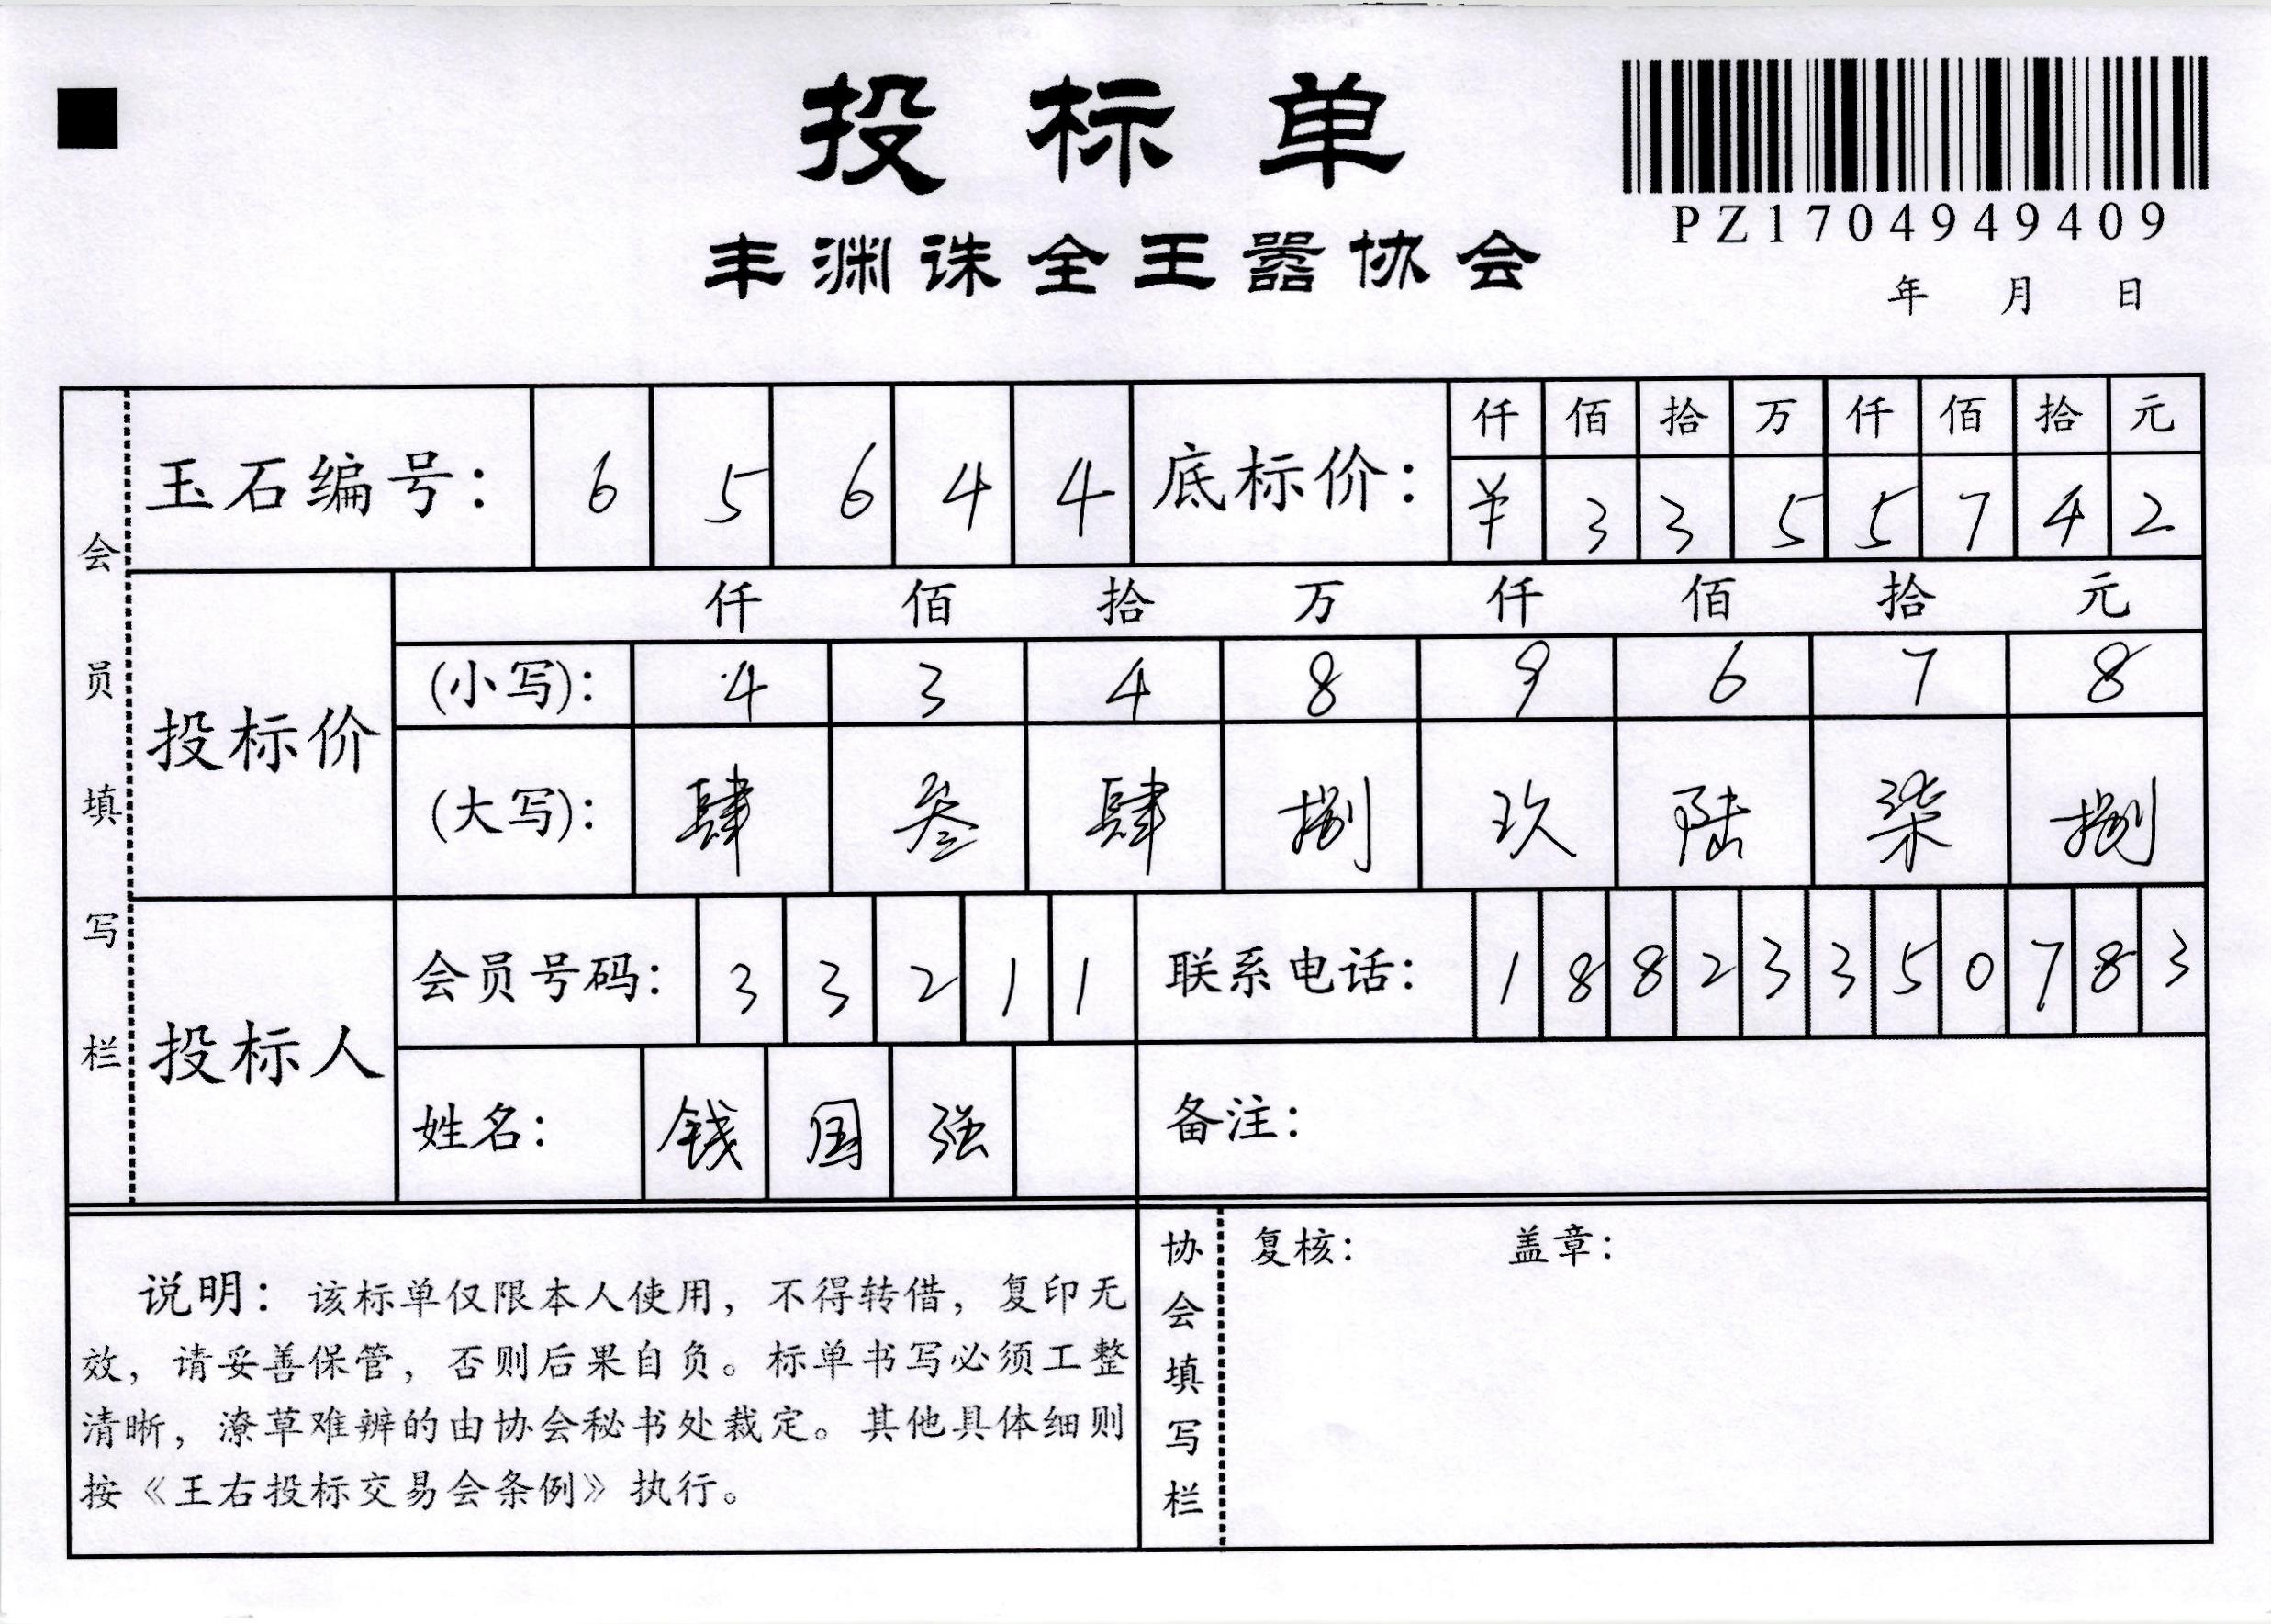 投标单
丰渊诛全王嚣协会
PZ1704949409
年 月 日
会员填写栏
玉石编号： 6 5 6 4 4
底标价： 仟 佰 拾 万 仟 佰 拾 元
¥ 3 3 5 5 7 4 2
投标价
仟 佰 拾 万 仟 佰 拾 元
(小写)： 4 3 4 8 9 6 7 8
(大写)： 肆 叁 肆 捌 玖 陆 柒 捌
投标人
会员号码： 3 3 2 1 1
联系电话： 1 8 8 2 3 3 5 0 7 8 3
姓名： 钱 国 强
备注：
说明：该标单仅限本人使用，不得转借，复印无
效，请妥善保管，否则后果自负。标单书写必须工整
清晰，潦草难辨的由协会秘书处裁定。其他具体细则
按《王右投标交易会条例》执行。
协会填写栏
复核： 盖章：